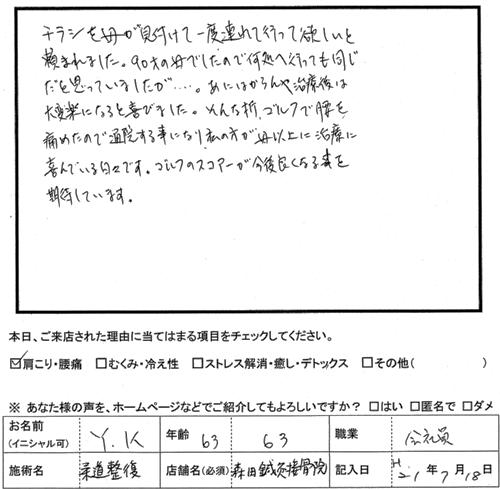 チラシを母が見付けて一度連れて行って欲しいと
頼まれました。90才の母でしたので何処へ行っても同じ
だと思っていましたが…。あにはからんや治療後は
大変楽になると喜びました。そんな折、ゴルフで腰を
痛めたので通院する事になり私の方が母以上に治療に
喜んでいる日々です。ゴルフのスコアーが今後良くなる事を
期待しています。
本日、ご来店された理由に当てはまる項目をチェックしてください。
☑肩こり・腰痛 □むくみ・冷え性 □ストレス解消・癒し・デトックス □その他( )
※ あなた様の声を、ホームページなどでご紹介してもよろしいですか? □はい □匿名で □ダメ
お名前 (イニシャル可) Y.K 年齢 63 63 職業 会社員
施術名 柔道整復 店舗名(必須) 森田鍼灸接骨院 記入日 H21年7月18日